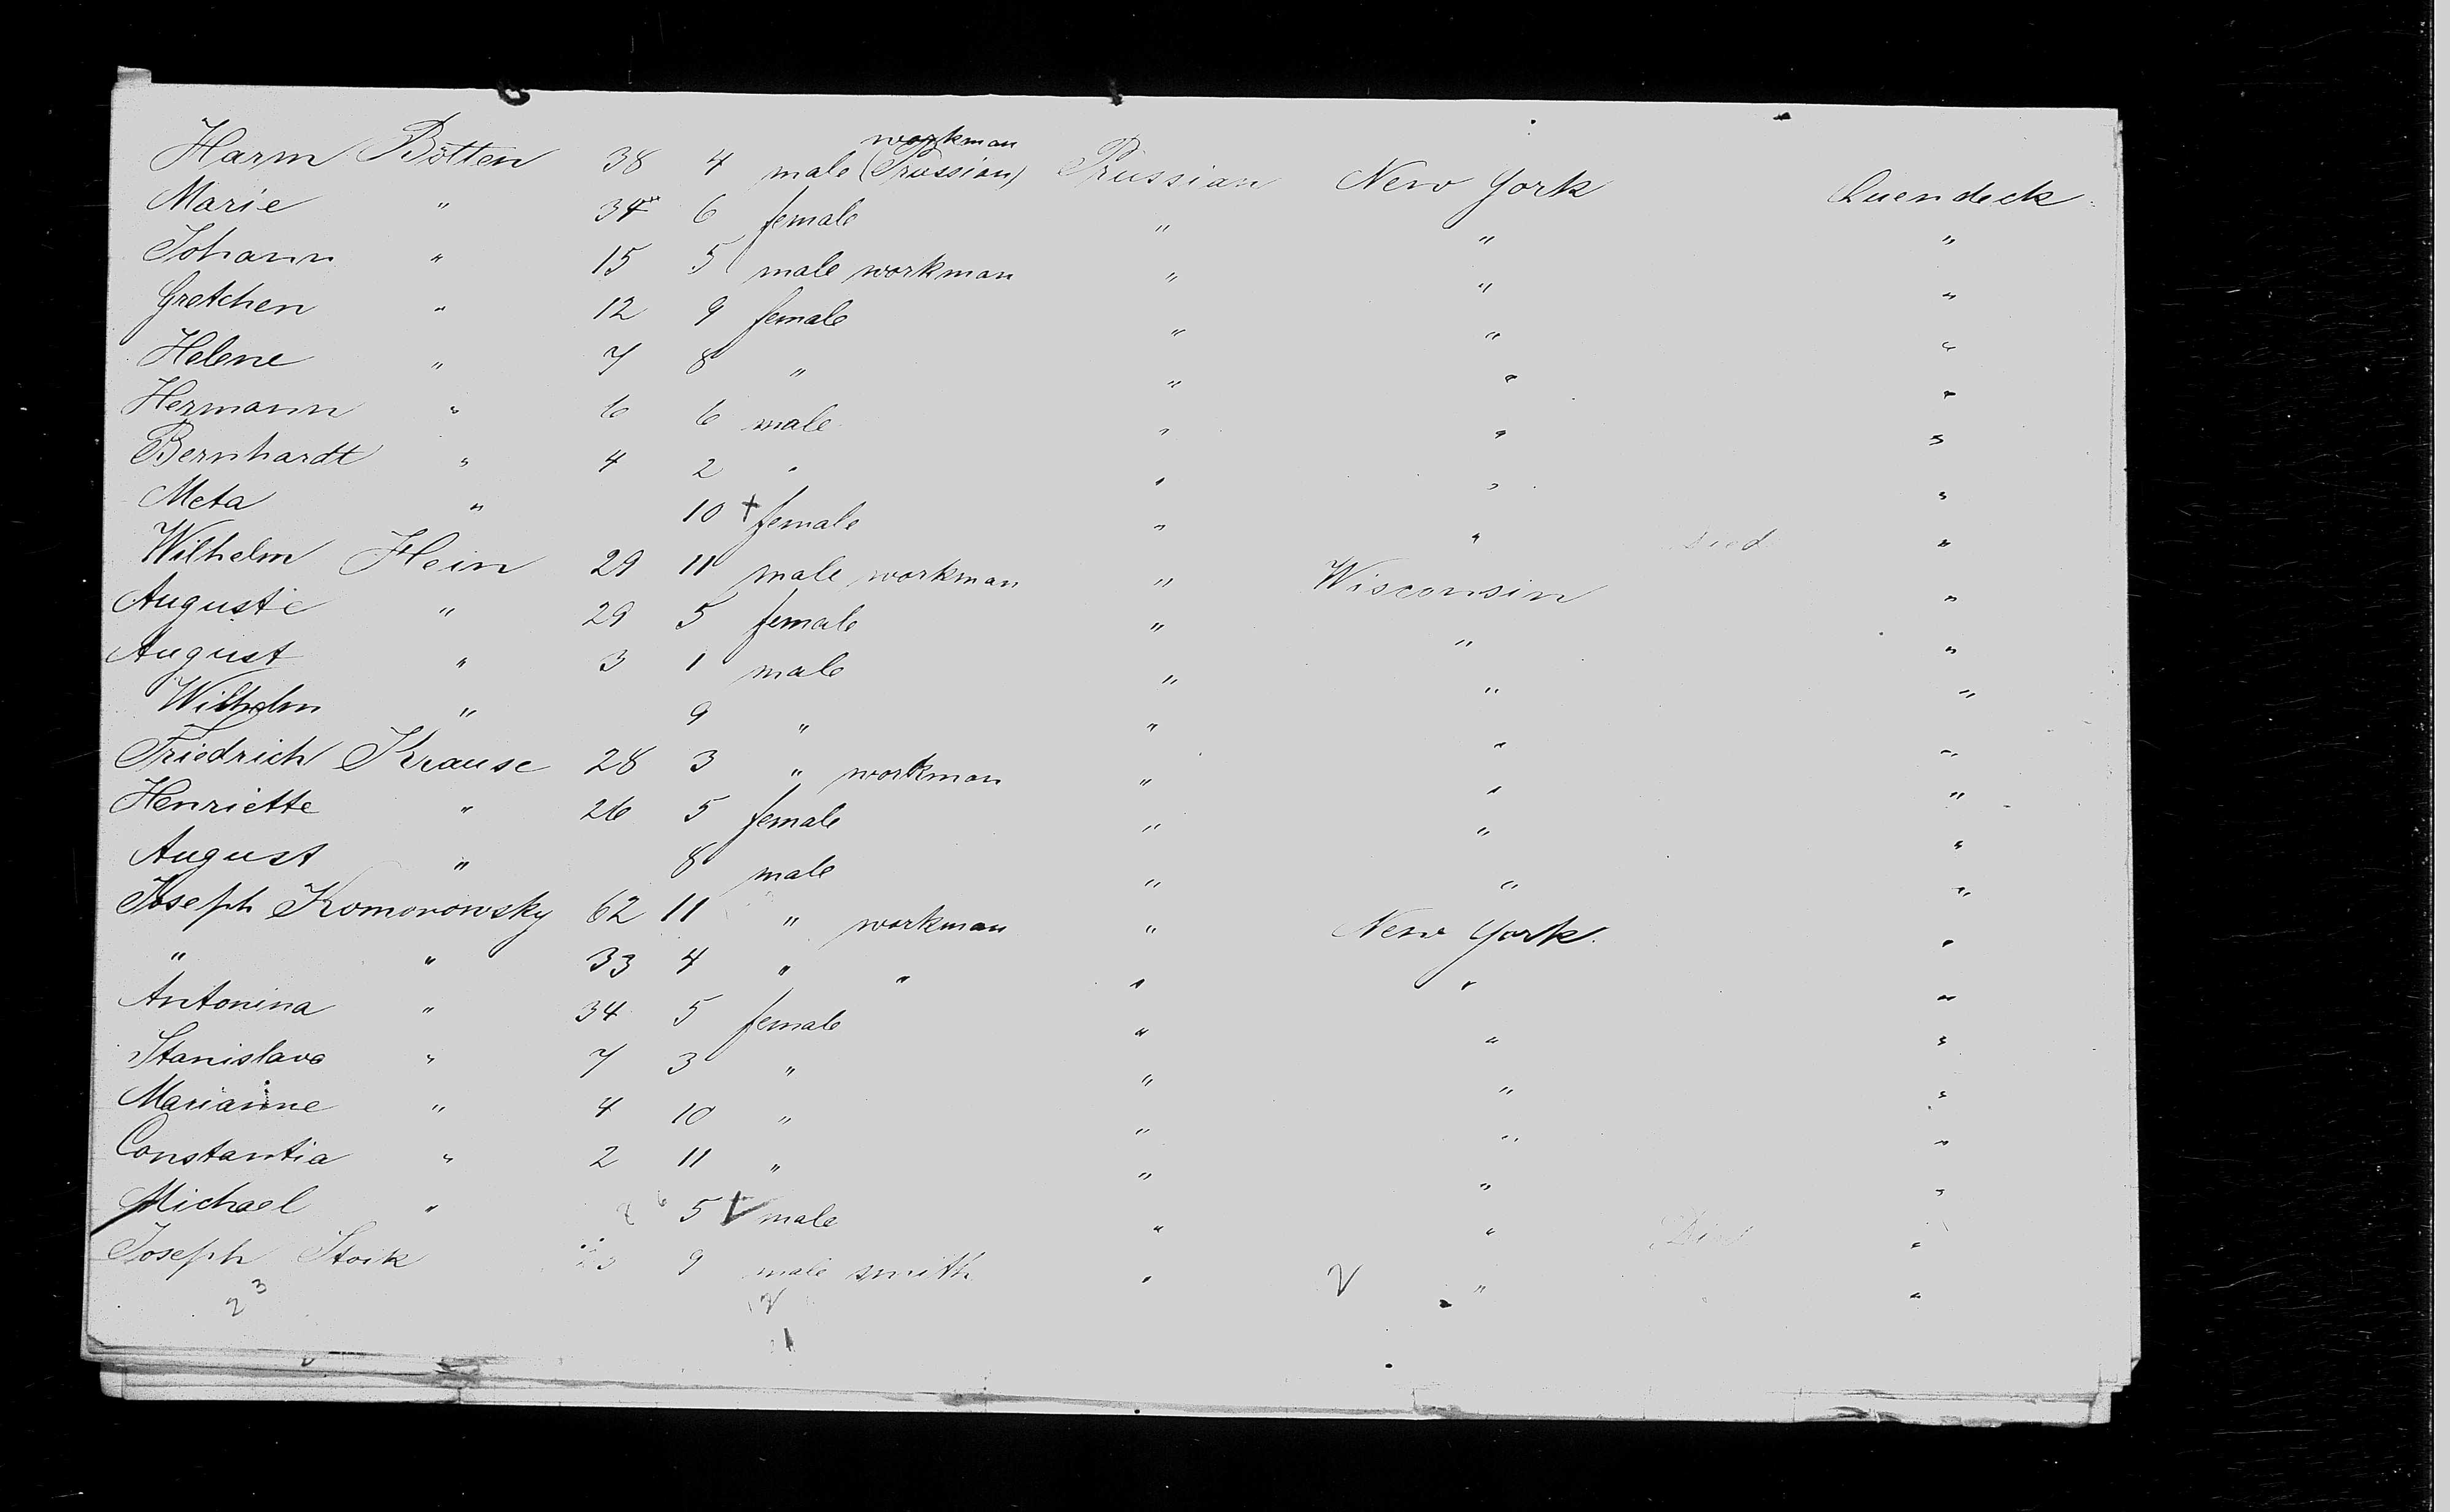 Harm Bötten 38 4 male workman (Prussian) Prussian New York Quendeck
Marie " 34 6 female " " "
Johann " 15 5 male workman " " "
Gretchen " 12 9 female " " "
Helene " 7 8 " " " "
Hermann " 6 6 male " " "
Bernhardt " 4 2 " " " "
Meta " 10 + female " " died "
Wilhelm Hein 29 11 male workman " Wisconsin "
Auguste " 29 5 female " " "
August " 3 1 male " " "
Wilhelm " 9 " " " "
Friedrich Krause 28 3 " workman " " "
Henriette " 26 5 female " " "
August " 8 male " " "
Joseph Komorowsky 62 11 " workman " New York "
" " 33 4 " " " " "
Antonina " 34 5 female " " "
Stanislava " 7 3 " " " "
Marianne " 4 10 " " " "
Constantia " 2 11 " " " "
Michael " 5 V male " " "
Joseph Stoik 9 male smith " V " "
23